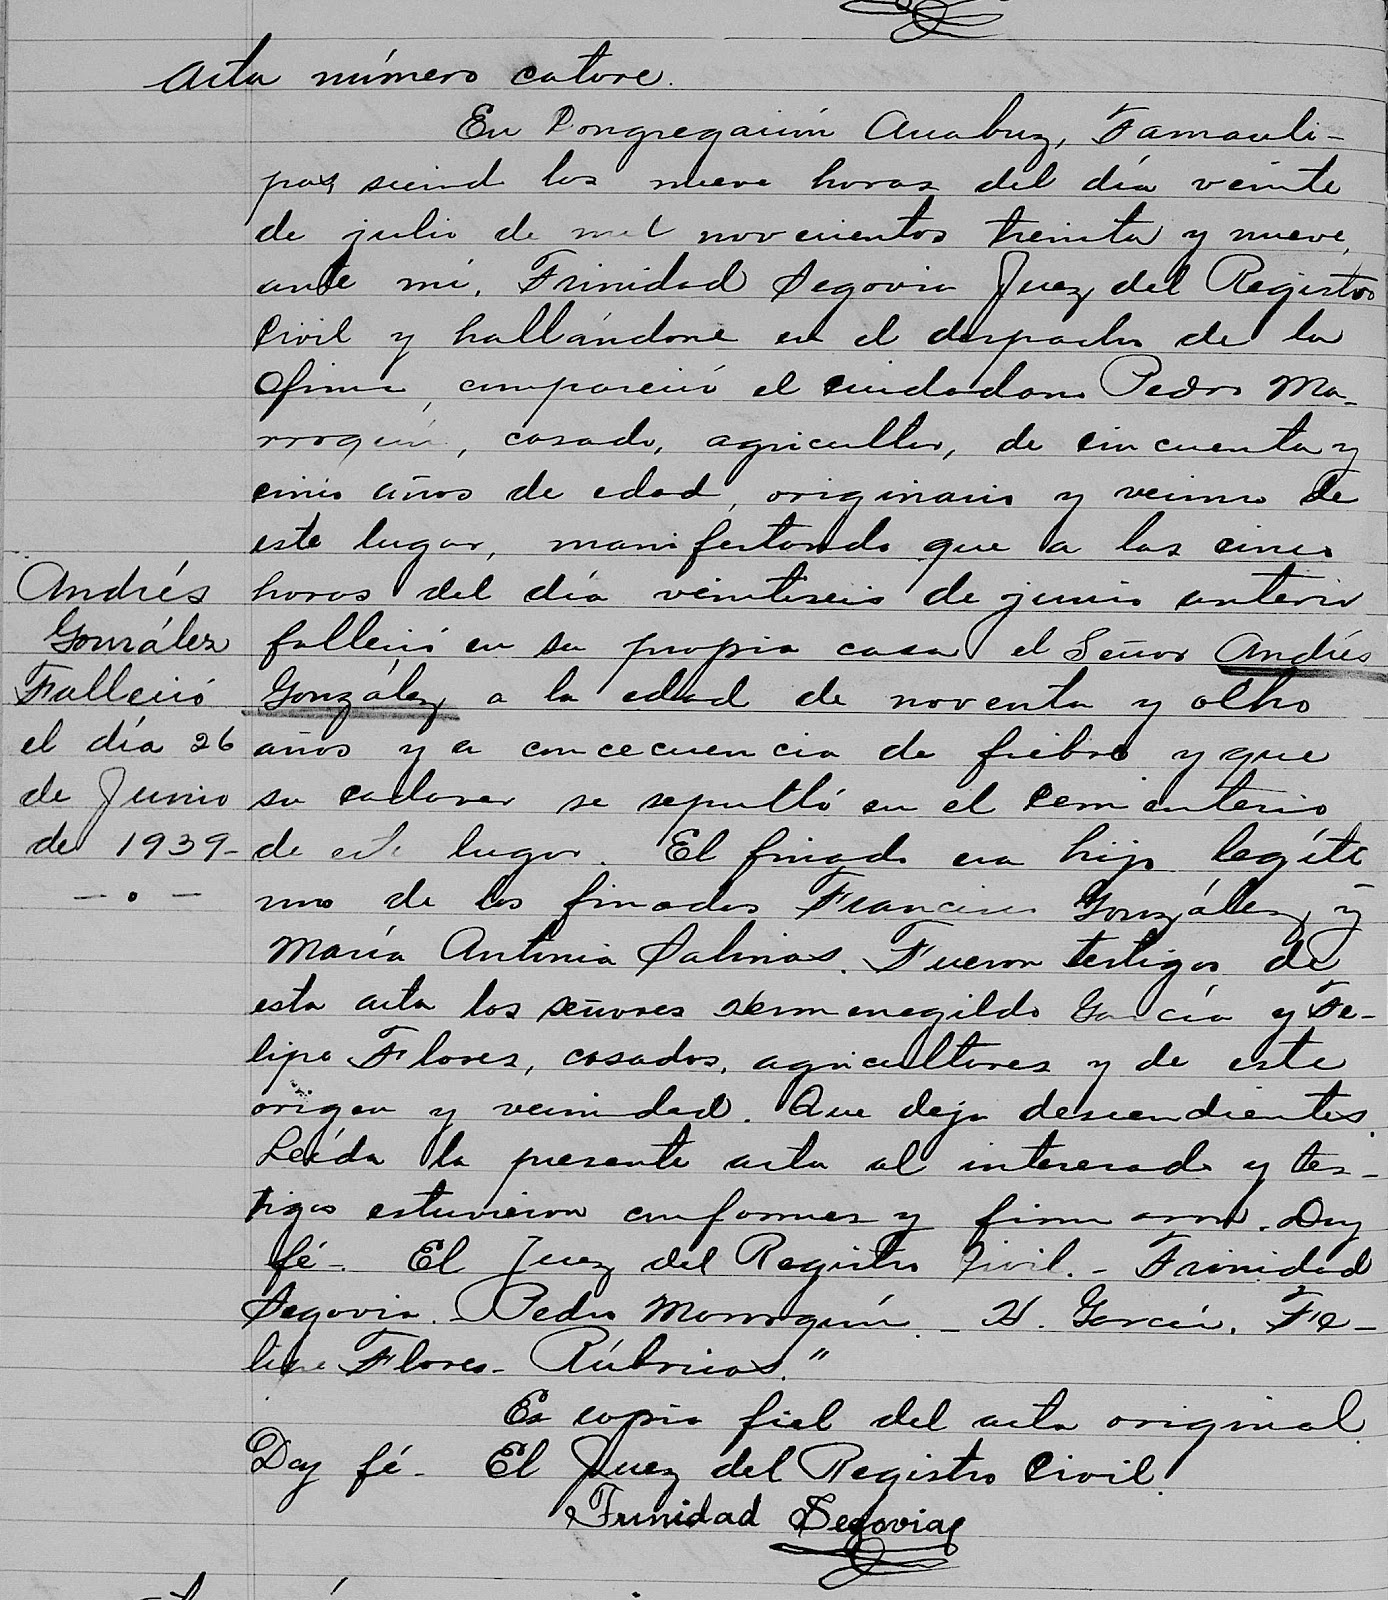 Acta número catorce.
En Congregación Anabuz, Tamauli-
pas, siend las nueve horas del día veinte
de julio de mil novecientos treinta y nueve,
ante mí, Trinidad Segovia Juez del Registro
Civil y hallándome en el despacho de la
Oficina, compareció el ciudadano Pedro Ma-
rroquín, casado, agricultor, de cincuenta y
cinco años de edad, originario y vecino de
este lugar, manifestando que a las cinco
horas del día veintiseis de junio anterior
falleció en su propia casa el Señor Andrés
González a la edad de noventa y ocho
años y a concecuencia de fiebre y que
su cadaver se sepultó en el cementerio
de este lugar. El finado era hijo legíti
mo de los finados Francisco González y
María Antonia Salinas. Fueron testigos de
esta acta los señores Hermenegildo García y Fe-
lipe Flores, casados, agricultores y de este
origen y vecindad. Que deja descendientes.
Leída la presente acta al interesado y tes-
tigos estuvieron conformes y firmaron. Doy
fé-. El Juez del Registro Civil.- Trinidad
Segovia. Pedro Marroquín.- H. García. Fe-
lipe Flores- Rúbricas."
Es copia fiel del acta original.
Doy fé- El Juez del Registro Civil.
Trinidad Segovia
Andrés
González
Falleció
el día 26
de Junio
de 1939-